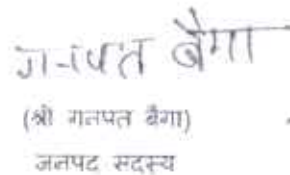 गनपत बैगा
(श्री गनपत बैगा)
जनपद सदस्य